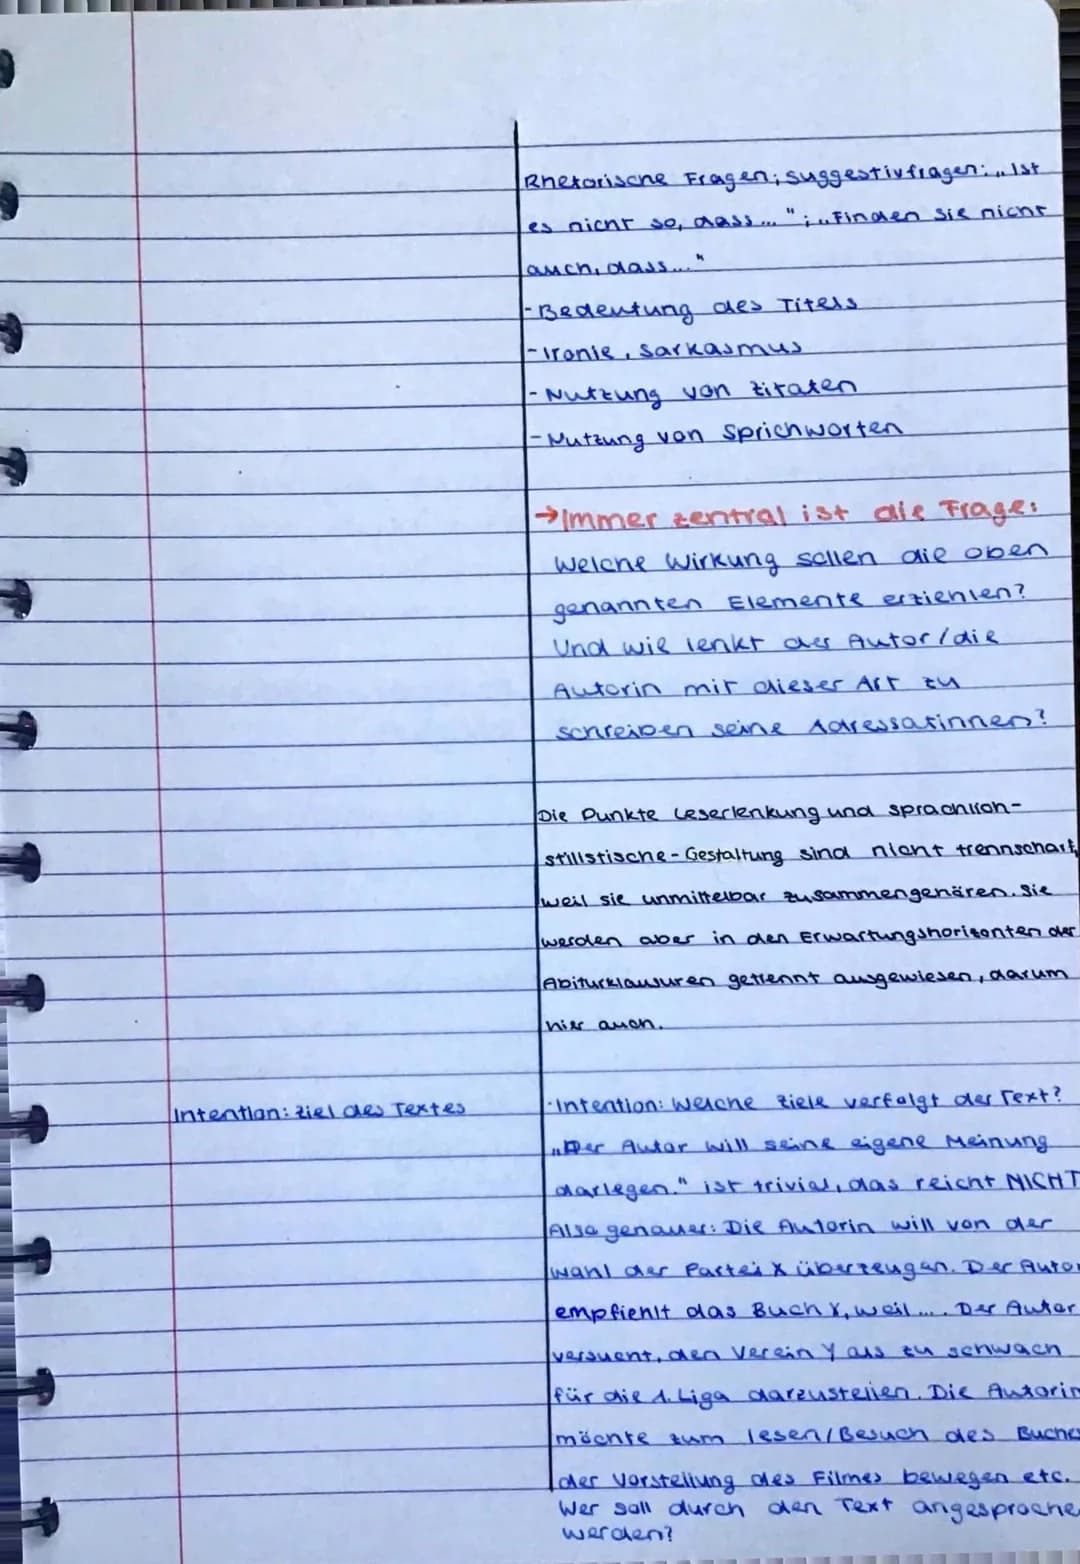 Rhetorische Fragen; suggestivfragen: „Ist
es nicht so, dass..."; „Finden sie nicht
auch, dass..."
- Bedeutung des Titels
- Ironie, Sarkasmus
- Nutzung von Zitaten
- Nutzung von Sprichworten
→Immer zentral ist die Frage:
Welche Wirkung sollen die oben
genannten Elemente erziehlen?
Und wie lenkt der Autor/die
Autorin mit dieser Art zu
schreiben seine Adressatinnen?
Die Punkte Leserlenkung und sprachlich-
stilistische-Gestaltung sind nicht trennscharf,
weil sie unmittelbar zusammengehören. Sie
werden aber in den Erwartungshorizonten der
Abiturklausuren getrennt ausgewiesen, darum
hier auch.
Intention: Ziel des Textes
·Intention: Welche Ziele verfolgt der Text?
„Der Autor will seine eigene Meinung
darlegen." ist trivial, das reicht NICHT
Also genauer: Die Autorin will von der
Wahl der Partei X überzeugen. Der Autor
empfiehlt das Buch Y, weil.... Der Autor
versucht, den Verein Y als zu schwach
für die 1. Liga darzustellen. Die Autorin
möchte zum lesen/Besuch des Buches
der Vorstellung des Filmes bewegen etc.
Wer soll durch den Text angesproche
werden?